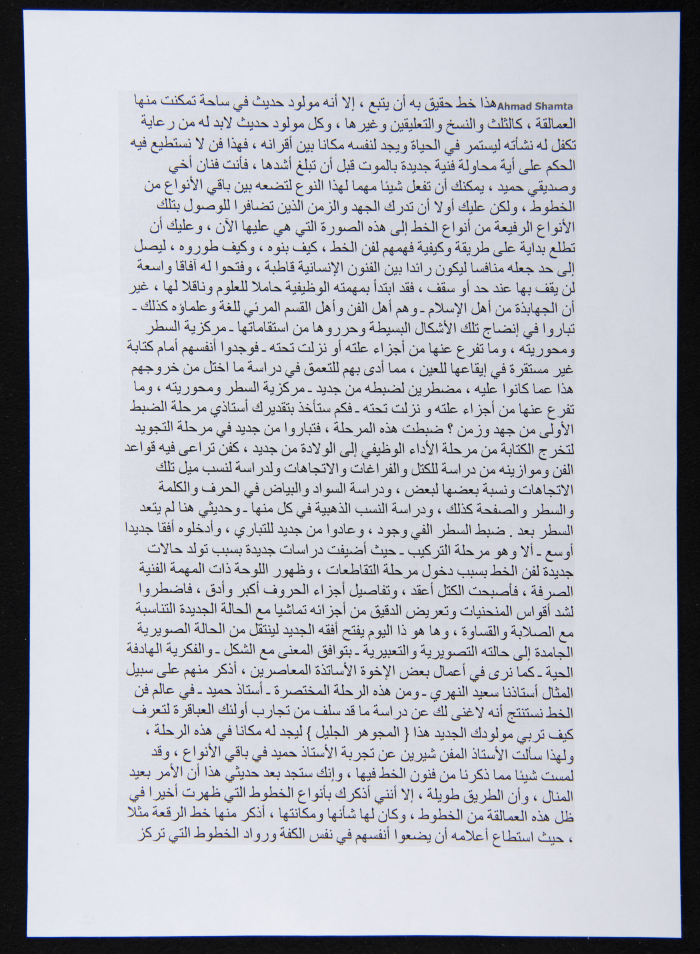 Ahmad Shamtaهذا خط حقيق به أن يتبع ، إلا أنه مولود حديث في ساحة تمكنت منها
العمالقة ، كالثلث والنسخ والتعليقين وغيرها ، وكل مولود حديث لابد له من رعاية
تكفل له نشأته ليستمر في الحياة ويجد لنفسه مكانا بين أقرانه ، فهذا فن لا نستطيع فيه
الحكم على أية محاولة فنية جديدة بالموت قبل أن تبلغ أشدها ، فأنت فنان أخي
وصديقي حميد ، يمكنك أن تفعل شيئا مهما لهذا النوع لتضعه بين باقي الأنواع من
الخطوط ، ولكن عليك أولا أن تدرك الجهد والزمن الذين تضافرا للوصول بتلك
الأنواع الرفيعة من أنواع الخط إلى هذه الصورة التي هي عليها الآن ، وعليك أن
تطلع بداية على طريقة وكيفية فهمهم لفن الخط ، كيف بنوه ، وكيف طوروه ، ليصل
إلى حد جعله منافسا ليكون رائدا بين الفنون الإنسانية قاطبة ، وفتحوا له آفاقا واسعة
لن يقف بها عند حد أو سقف ، فقد ابتدأ بمهمته الوظيفية حاملا للعلوم وناقلا لها ، غير
أن الجهابذة من أهل الإسلام ـ وهم أهل الفن وأهل القسم المرئي للغة وعلماؤه كذلك ـ
تباروا في إنضاج تلك الأشكال البسيطة وحرروها من استقاماتها ـ مركزية السطر
ومحوريته ، وما تفرع عنها من أجزاء علته أو نزلت تحته ـ فوجدوا أنفسهم أمام كتابة
غير مستقرة في إيقاعها للعين ، مما أدى بهم للتعمق في دراسة ما اختل من خروجهم
هذا عما كانوا عليه ، مضطرين لضبطه من جديد ـ مركزية السطر ومحوريته ، وما
تفرع عنها من أجزاء علته و نزلت تحته ـ فكم ستأخذ بتقديرك أستاذي مرحلة الضبط
الأولى من جهد وزمن ؟ ضبطت هذه المرحلة ، فتباروا من جديد في مرحلة التجويد
لتخرج الكتابة من مرحلة الأداء الوظيفي إلى الولادة من جديد ، كفن تراعى فيه قواعد
الفن وموازينه من دراسة للكتل والفراغات والاتجاهات ولدراسة لنسب ميل تلك
الاتجاهات ونسبة بعضها لبعض ، ودراسة السواد والبياض في الحرف والكلمة
والسطر والصفحة كذلك ، ودراسة النسب الذهبية في كل منها ـ وحديثي هنا لم يتعد
السطر بعد . ضبط السطر الفي وجود ، وعادوا من جديد للتباري ، وأدخلوه أفقا جديدا
أوسع ـ ألا وهو مرحلة التركيب ـ حيث أضيفت دراسات جديدة بسبب تولد حالات
جديدة لفن الخط بسبب دخول مرحلة التقاطعات ، وظهور اللوحة ذات المهمة الفنية
الصرفة ، فأصبحت الكتل أعقد ، وتفاصيل أجزاء الحروف أكبر وأدق ، فاضطروا
لشد أقواس المنحنيات وتعريض الدقيق من أجزائه تماشيا مع الحالة الجديدة التناسبة
مع الصلابة والقساوة ، وها هو ذا اليوم يفتح أفقه الجديد لينتقل من الحالة الصويرية
الجامدة إلى حالته التصويرية والتعبيرية ـ بتوافق المعنى مع الشكل ـ والفكرية الهادفة
الحية ـ كما نرى في أعمال بعض الإخوة الأساتذة المعاصرين ، أذكر منهم على سبيل
المثال أستاذنا سعيد النهري ـ ومن هذه الرحلة المختصرة ـ أستاذ حميد ـ في عالم فن
الخط نستنتج أنه لاغنى لك عن دراسة ما قد سلف من تجارب أولئك العباقرة لتعرف
كيف تربي مولودك الجديد هذا { المجوهر الجليل } ليجد له مكانا في هذه الرحلة ،
ولهذا سألت الأستاذ المفن شيرين عن تجربة الأستاذ حميد في باقي الأنواع ، وقد
لمست شيئا مما ذكرنا من فنون الخط فيها ، وإنك ستجد بعد حديثي هذا أن الأمر بعيد
المنال ، وأن الطريق طويلة ، إلا أنني أذكرك بأنواع الخطوط التي ظهرت أخيرا في
ظل هذه العمالقة من الخطوط ، وكان لها شأنها ومكانتها ، أذكر منها خط الرقعة مثلا
، حيث استطاع أعلامه أن يضعوا أنفسهم في نفس الكفة ورواد الخطوط التي تركز